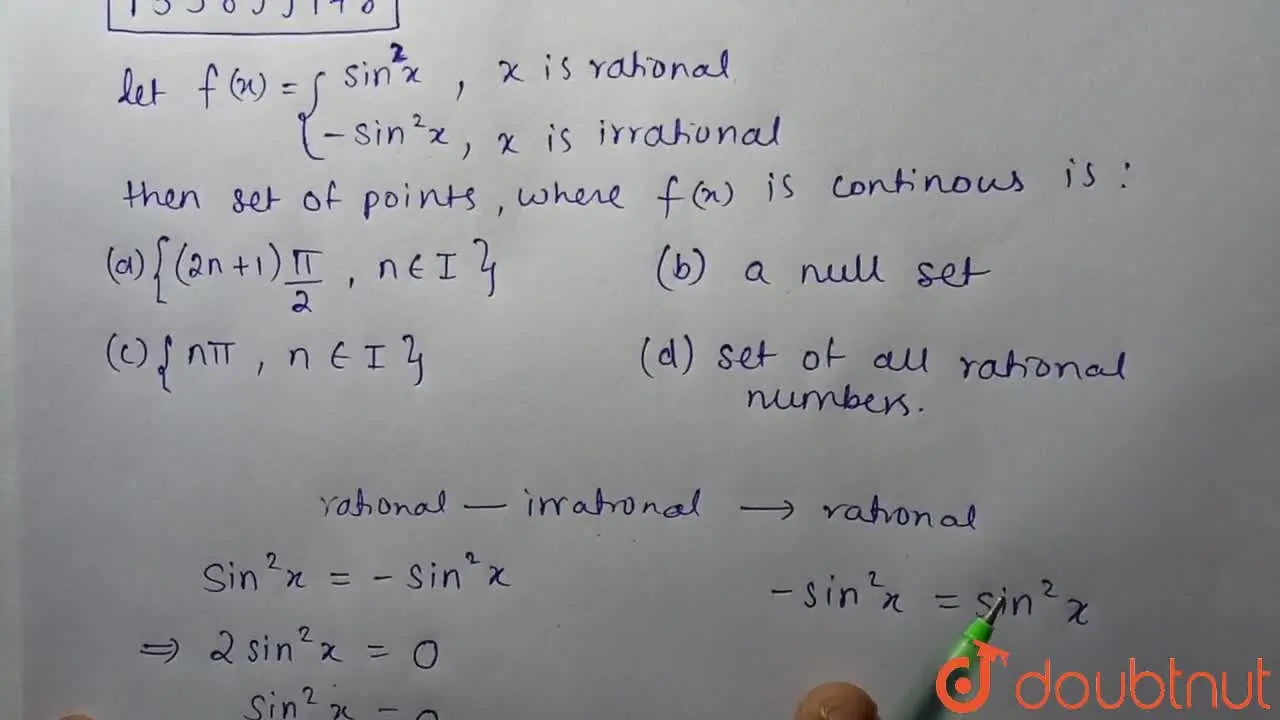 let f(x) = { sin²x , x is rational
-sin²x , x is irrational
then set of points, where f(x) is continous is :
(a) {(2n+1) π/2 , n ∈ I }
(b) a null set
(c) { nπ , n ∈ I }
(d) set of all rational
numbers.
rational — irrational → rational
sin²x = - sin²x
- sin²x = sin²x
⇒ 2 sin²x = 0
sin²x = 0
doubtnut